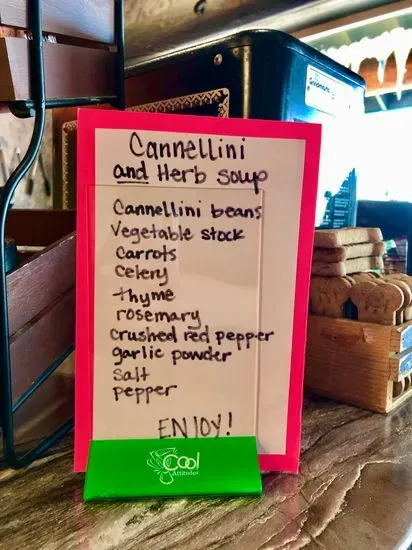 Cannellini
and Herb soup
Cannellini beans
Vegetable stock
Carrots
Celery
thyme
rosemary
crushed red pepper
garlic powder
salt
pepper
ENJOY!
Cool
Attitudes